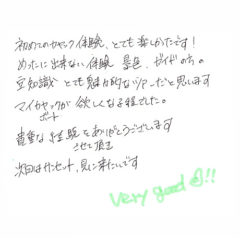 初めてのカヤック体験、とても楽しかったです！
めったに出来ない体験 景色、ガイドの方の
豆知識 とても魅力的なツアーだと思います
マイカヤックが欲しくなる程でした。
ボート
貴重な経験をありがとうございます
させて頂き
次回はサンセット、見に来たいです
very good!!